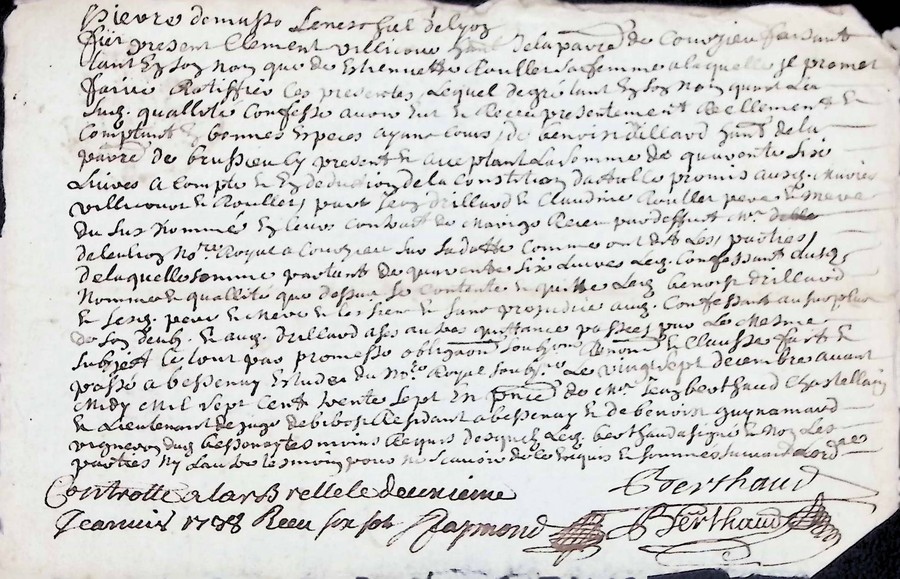 Pierre de masso seneschal de lyon
fut present Clement villicour habt de la parre de Courzieu faisant
tant En son Nom que de Estiennette Roullet sa femme a laquelle Il promet
faire Ratiffier Ces presentes, Lequel de gré tant En son Nom quen La
susd. quallité Confesse avoir Eut et Receu presentement Reellement et
Comptant En bonnes Especes ayant cours, de benoist drillard habt de la
parre de brussieu Cy present et acceptant La somme de quarente six
Livres a Compte et En deduction de la Constitution dotalle promis ausd. Mariés
villicour et Roullet, par Jean drillard et Claudine Roullet pere et Mere
du sus Nommé En leurs Contrat de Mariage Receu par deffunt Me
Nore Royal a Courzieu sur sa datte Comme ont dit Les parties,
de laquelle somme partant de quarente six Livres Led. Confessant ausd.
Nommé et quallité que dessus se Contente et quitte Led. benoist drillard
et sesd. pere et Mere et les siens et sans prejudice aud. Confessant au surplus
de son deub, et aud. drillard a ses autres quittance passées par Le Mesme
subject Le tout par promesse obligaon soubmon Renoon et Clausse fait et
passé a bessenay Estude du Nore Royal soubné Le vingt sept decembre avant
Midy Mil sept Cent trente sept En pnce de Me Jean berthaud Chastellain
et Lieutenant de juge de bibost Residant a bessenay et de benoist guynamard
vigneron dud. bessenay tesmoins Requis desquels Led. berthaud a signé et Non Les
parties Ny Lautre tesmoin pour ne scavoir de ce Enquis et sommés suivant Lord
Controllé a larBrelle le deuxieme
Janvier 1738 Receu six sols Raymond
Berthaud
Berthaud